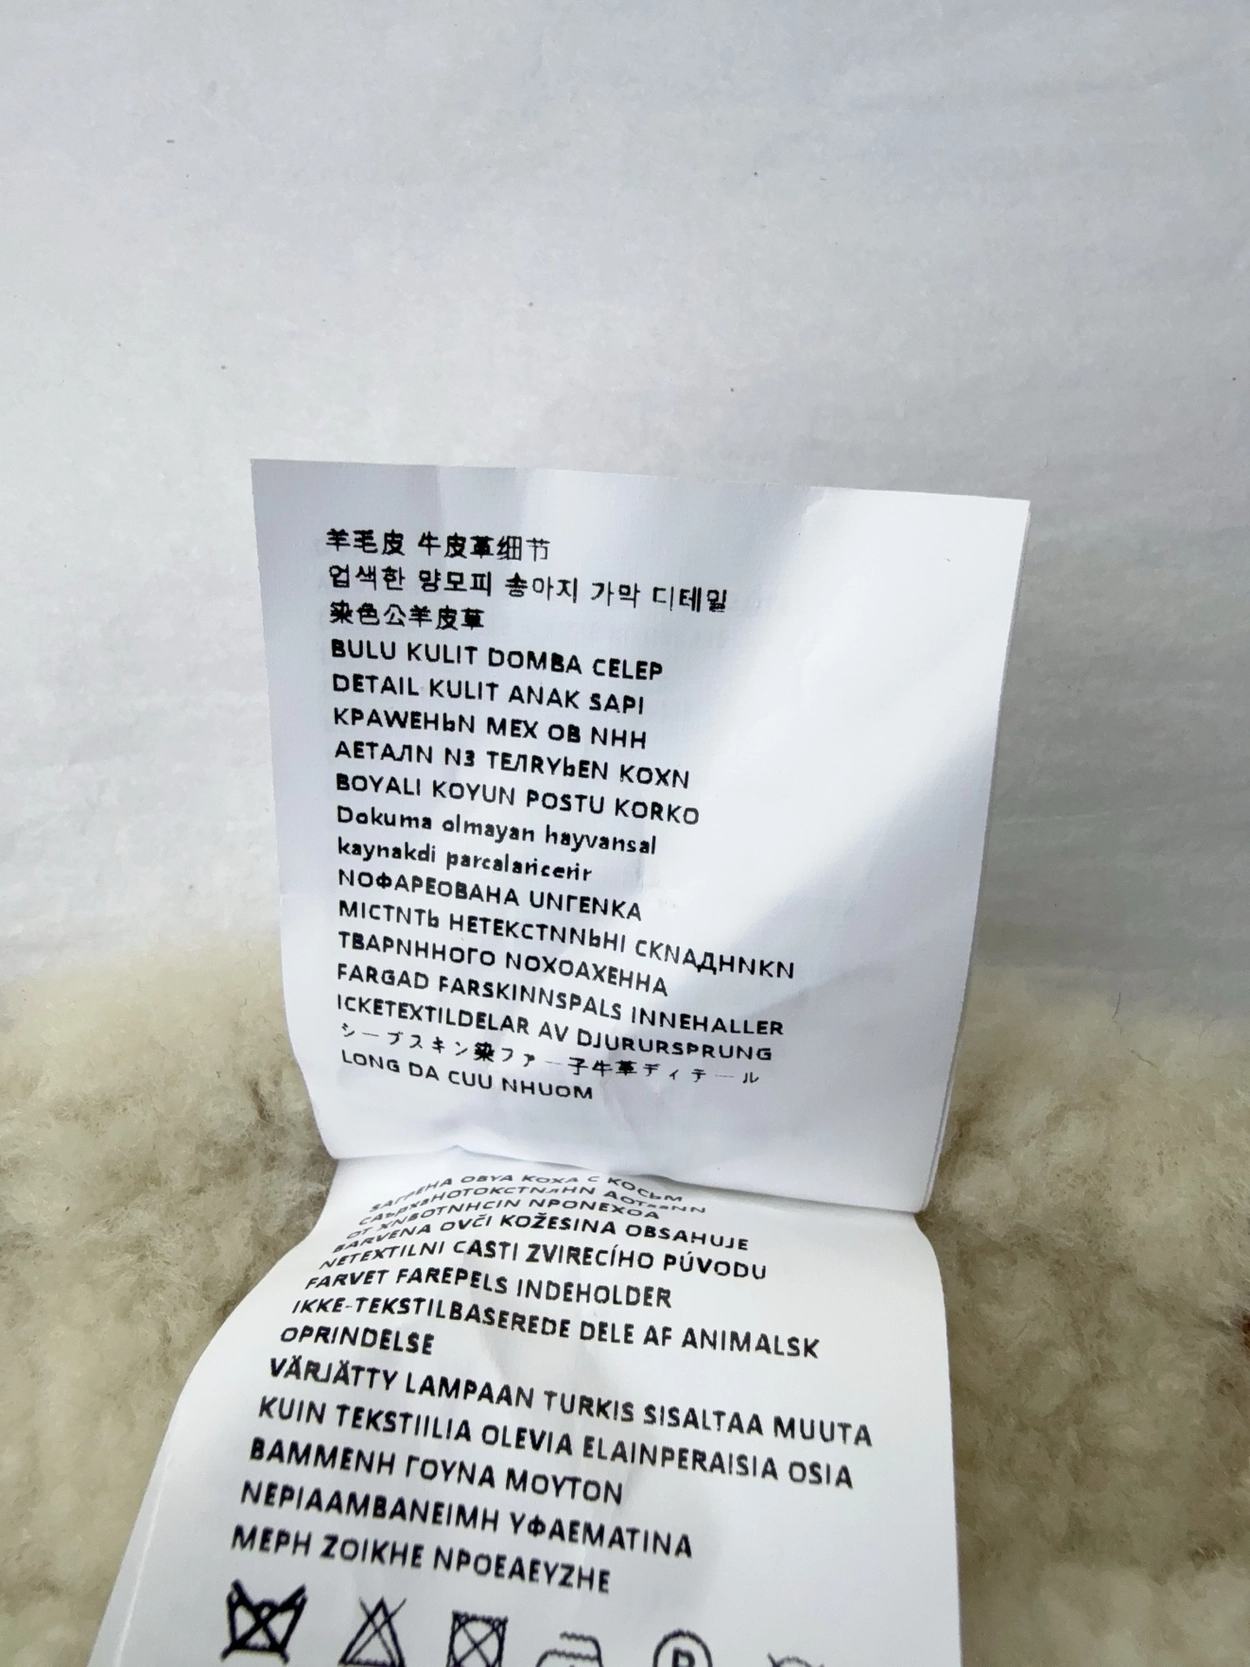 羊毛皮 牛皮革细节
업색한 먕모피 송아지 가막 디테밀
染色公羊皮革
BULU KULIT DOMBA CELEP
DETAIL KULIT ANAK SAPI
КРАШЕНЬN МЕХ ОВ NНН
АЕТАЛN NЗ ТЕЛRYЬЕN КОХN
BOYALI KOYUN POSTU KORKO
Dokuma olmayan hayvansal
kaynakdi parcalaricerir
NОФАРЕОВАНА UNГЕNКА
МІСТNТЬ НЕТЕКСТNNЬНІ СКNАДНNКN
ТВАРNННОГО NОХОАХЕННА
FARGAD FARSKINNSPALS INNEHALLER
ICKETEXTILDELAR AV DJURURSPRUNG
シープスキン染ファー子牛革ディテール
LONG DA CUU NHUOM
ОВУА КОХА С КОСЬМ
ОТ ХNВОТNНСІN NРОNЕХОА
BARVENA OVČI KOŽESINA OBSAHUJE
NETEXTILNI CASTI ZVIRECÍHO PÚVODU
FARVET FAREPELS INDEHOLDER
IKKE-TEKSTILBASEREDE DELE AF ANIMALSK
OPRINDELSE
VÄRJÄTTY LAMPAAN TURKIS SISALTAA MUUTA
KUIN TEKSTIILIA OLEVIA ELAINPERAISIA OSIA
ΒΑΜΜΕΝΗ ΓΟΥΝΑ ΜΟΥΤΟΝ
ΝΕΡΙΑΑΜΒΑΝΕΙΜΗ ΥΦΑΕΜΑΤΙΝΑ
ΜΕΡΗ ΖΟΙΚΗΕ ΝΡΟΕΑΕΥΖΗΕ
P